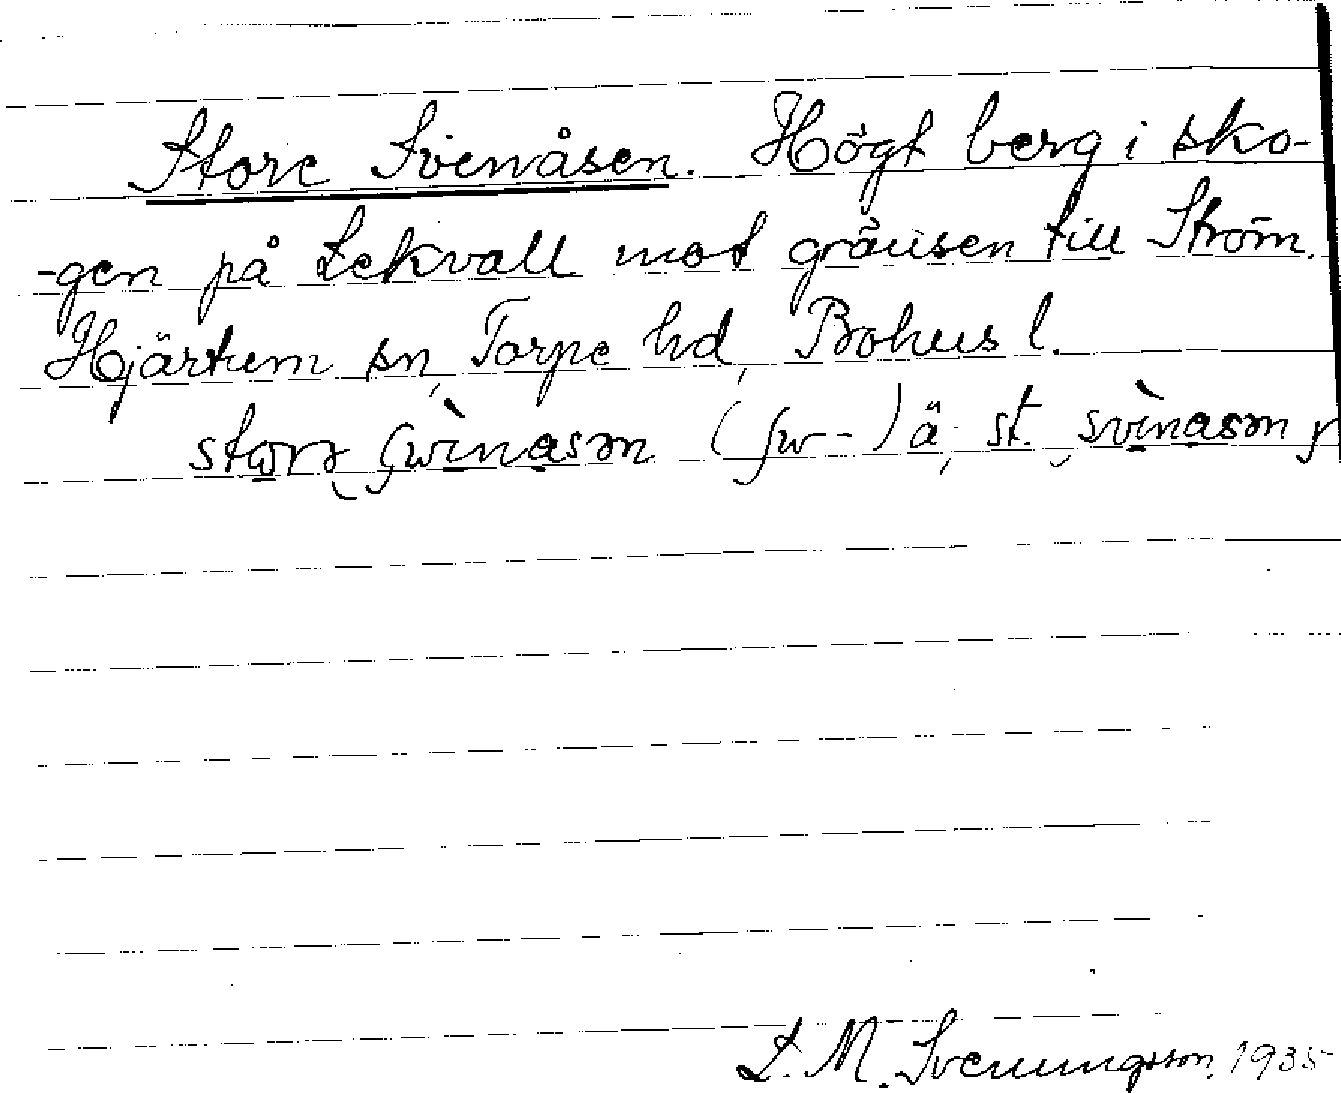 Store Svenåsen. Högt berg i sko-
-gen på Lekvall mot gränsen till Ström.
Hjärtum sn, Torpe hd, Bohus l.
(ſw-) ä. st.
L. M. Svenungsson, 1935